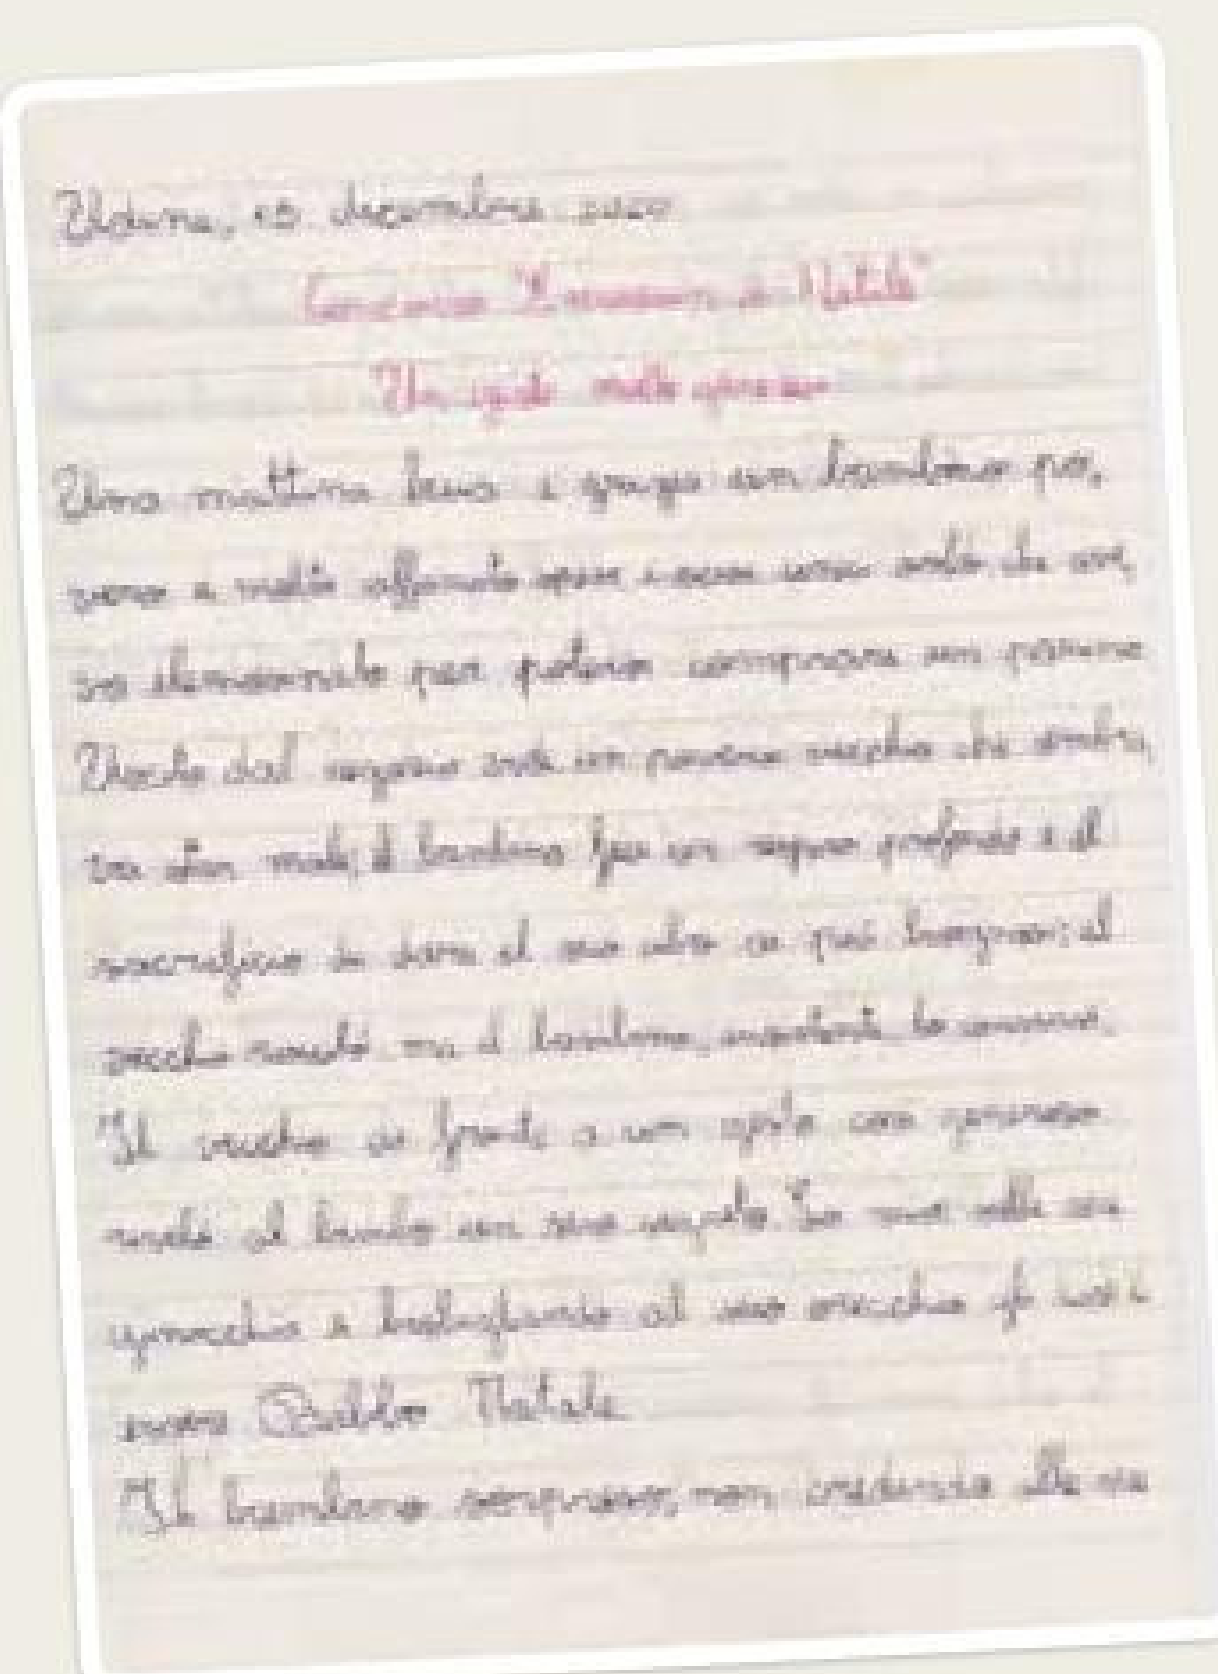 Udine, dicembre 2020
Concorso "Racconti di Natale"
Un gesto molto generoso
Una mattina buia e grigia un bambino po,
vero e molto affamato spese i suoi unici soldi che ave,
va elemosinato per potersi comprare un panino
Uscito dal negozio vide un povero vecchio che sembra,
va star male; il bambino fece un respiro profondo e il
sacrificio di dare il suo cibo a più bisognosi: il
vecchio ma il bambino, insistente, lo convinse.
Il vecchio di fronte a un gesto così generoso
rivelò al bimbo un suo segreto. Lo mise sulle sue
ginocchia e bisbigliando al suo orecchio gli
essere Babbo Natale
Il bambino sorpreso, non credendo alle sue